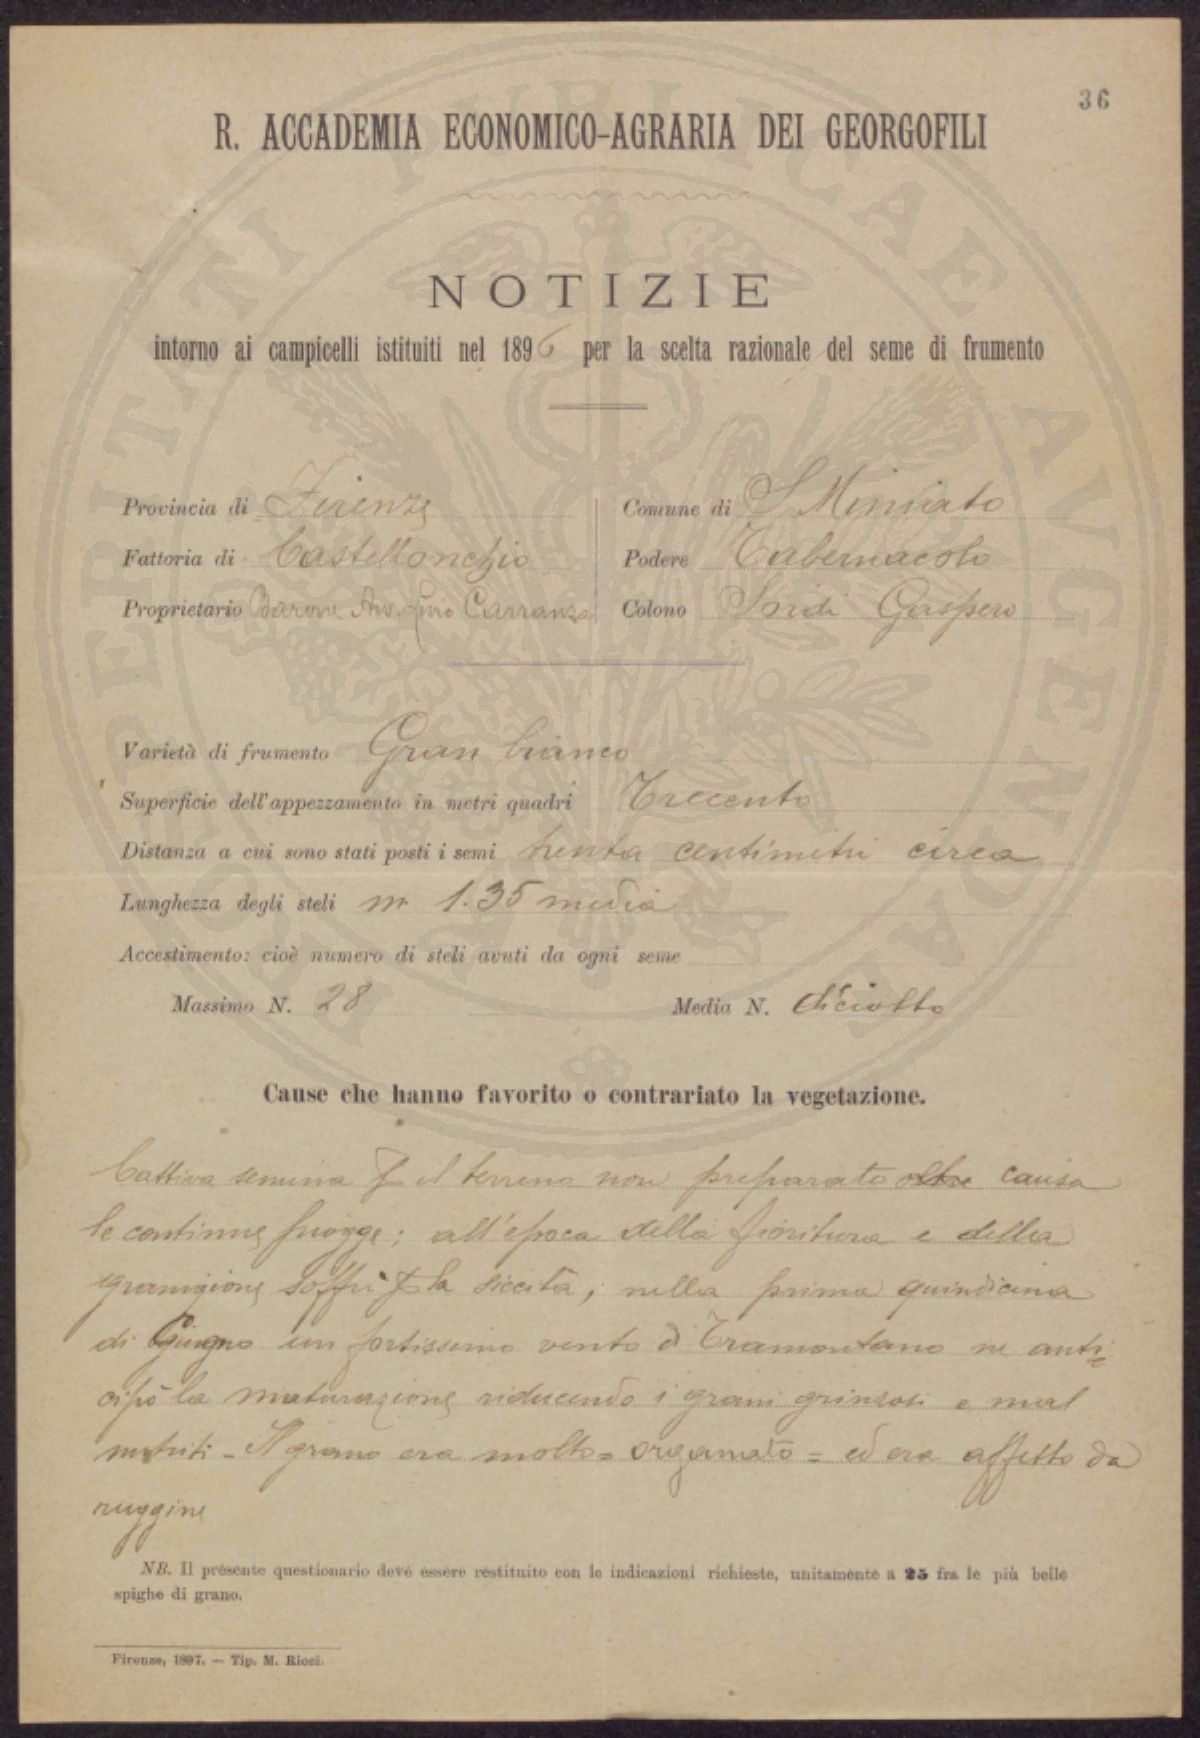 36
R. ACCADEMIA ECONOMICO-AGRARIA DEI GEORGOFILI
NOTIZIE
intorno ai campicelli istituiti nel 1896 per la scelta razionale del seme di frumento
Provincia di Firenze
Comune di S Miniato
Fattoria di Castellonchio
Podere Tabernacolo
Proprietario Barone Avv. Livio Carranza
Colono Gaspero
Varietà di frumento Gran bianco
Superficie dell'appezzamento in metri quadri Trecento
Distanza a cui sono stati posti i semi trenta centimetri circa
Lunghezza degli steli m 1.35 media
Accestimento: cioè numero di steli avuti da ogni seme
Massimo N. 28
Media N. diciotto
Cause che hanno favorito o contrariato la vegetazione.
Cattiva semina il terreno non preparato causa
le continue piogge; all'epoca della fioritura e della
granigione soffrì la siccità; nella prima quindicina
di Giugno un fortissimo vento di Tramontano ne anti=
cipò la maturazione riducendo i grani grinzosi e mal
nutriti - Il grano era molto = orgamato = ed era affetto da
ruggine
NB. Il presente questionario deve essere restituito con le indicazioni richieste, unitamente a 25 fra le più belle
spighe di grano.
Firenze, 1897. — Tip. M. Ricci.
PROSPERITATI PUBLICAE AUGENDAE